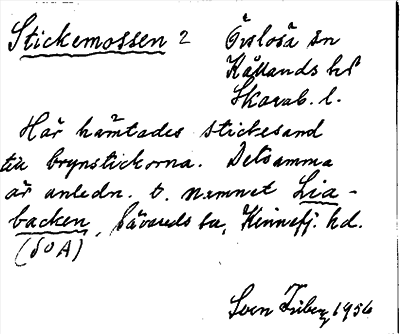 Stickemossen 2 Örslösa sn
Kållands hd
Skarab. l.
Här hämtades stickesand
till brynstickorna. Detsamma
är anledn. t. namnet Lia-
backen, Sävareds sn, Kinnefj. hd.
(SOA)
Sven 1956